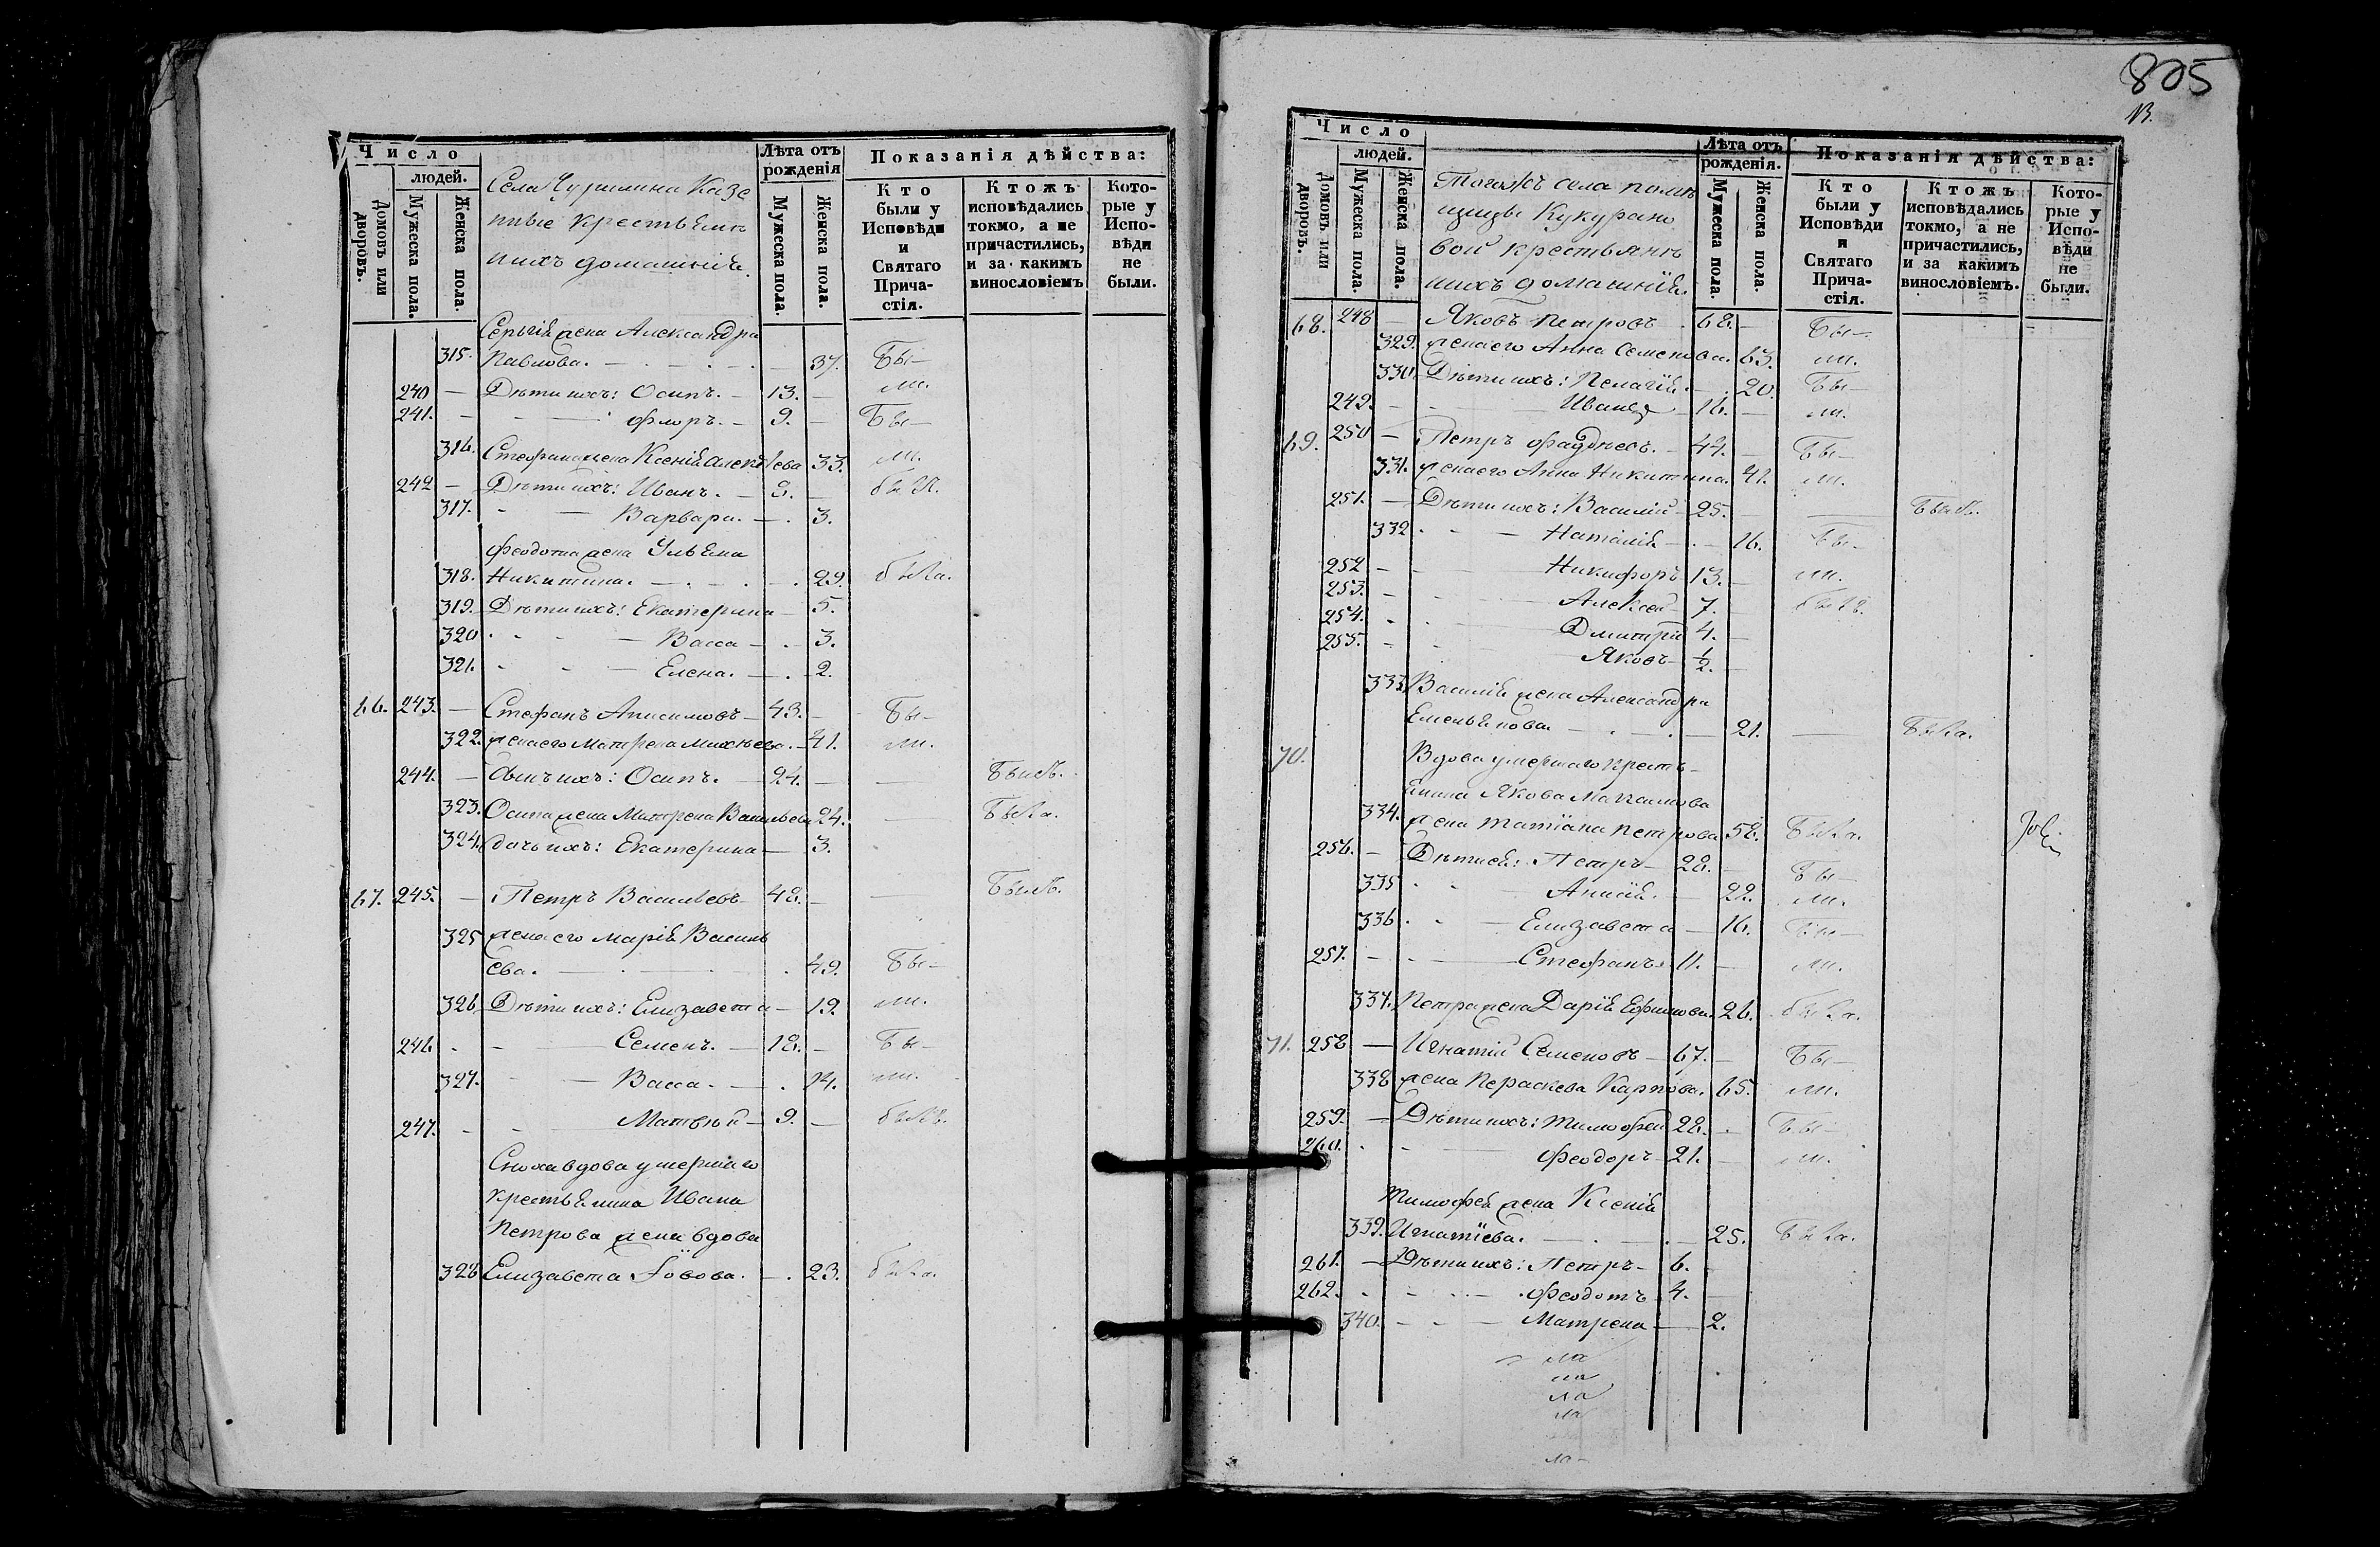 Число
людей.
Домовъ или дворовъ.
Мужеска пола.
Женска пола.
Села Чурилина Казе
нные крестьяне
ихъ домашнiе.
Лѣта отъ рожденiя
Мужеска пола.
Женска пола.
Показанiя дѣйства:
Кто были у Исповѣди и Святаго Прича-стiя.
Ктожъ исповѣдались токмо, а не причастились, и за какимъ винословiемъ
Кото-рые у Испо-вѣди не были.
Сергiя жена Александра
315. Павлова. 37. Бы-
240 Дѣти ихъ: Осипъ. 13. ли.
241. Флоръ. 9. Бы-
316. Стефана жена Ксенiя 33. ли.
242 Дѣти ихъ: Иванъ.
317. Варвара. 3.
Феодота жена Ульяна
318. Никитина. 29. была.
319. Дѣти ихъ: Екатерина 5.
320. Васса 3.
321. Елена. 2.
66. 243. Стефанъ Анисимовъ 43. Бы-
322. жена его Матрена Михѣева. 41. ли.
244. Сынъ ихъ: Осипъ. 24. Былъ.
323. Осипа жена Матрена Васильева 24. Была.
324. дочь ихъ: Екатерина 3.
67. 245. Петръ Васильевъ 48. Былъ.
325 жена его Марiя Василь
ева. 49. Бы-
326. Дѣти ихъ: Елизавета 19. ли.
246 Семенъ. 18. Бы-
327. Васса. 14. ли.
247. Матвѣй 9. былъ.
Сноха вдова умершаго
крестьянина Ивана
Петрова жена вдова
328 Елизавета 23. была.
805
Число
людей.
Домовъ или дворовъ.
Мужеска пола.
Женска пола.
Тогожъ села помѣ
щицы Кукурано
вой крестьяне
ихъ домашнiе.
Лѣта отъ рожденiя.
Мужеска пола.
Женска пола.
Показанiя дѣйства:
Кто были у Исповѣди и Святаго Прича-стiя.
Ктожъ исповѣдались токмо, а не причастились, и за какимъ винословiемъ.
Кото-рые у Испо-вѣди не были.
68. 248 Яковъ Петровъ 68. Бы-
329. жена его Анна Семенова. 63. ли.
330. Дѣти ихъ: Пелагiя. 20. Бы-
249. Иванъ 16. ли.
69. 250 Петръ Фаддѣевъ. 44. Бы-
331. жена его Анна Никитина. 41. ли.
251. Дѣти ихъ: Василiй 25. Былъ.
332 Наталiя 16. Бы-
252 Никифоръ 13. ли.
253. Алексѣй 7. былъ.
254. Дмитрiй 4.
255. Яковъ 1/2.
333. Василiя жена Александра
Емельянова. 21. Была.
70. Вдова умершаго кресть-
янина Якова Максимова
334. жена Татiана Петрова 58. Была.
256. Дѣти ея: Петръ 28. Бы-
335 Анисiя. 22. ли.
336 Елизавета 16. Бы-
257. Стефанъ 11. ли.
337. Петра жена Дарiя Ефимова. 26. была.
71. 258 Игнатiй Семеновъ 67. Бы-
338 жена Параскева Карпова. 65. ли.
259. Дѣти ихъ: Тимофей 28. Бы-
260. Феодоръ 21. ли.
Тимофея жена Ксенiя
339. Игнатiева. 25. Была.
261. Дѣти ихъ: Петръ 6.
262. Феодотъ 4.
340. Матрена 2.
ла
ла
ла
ла
ла